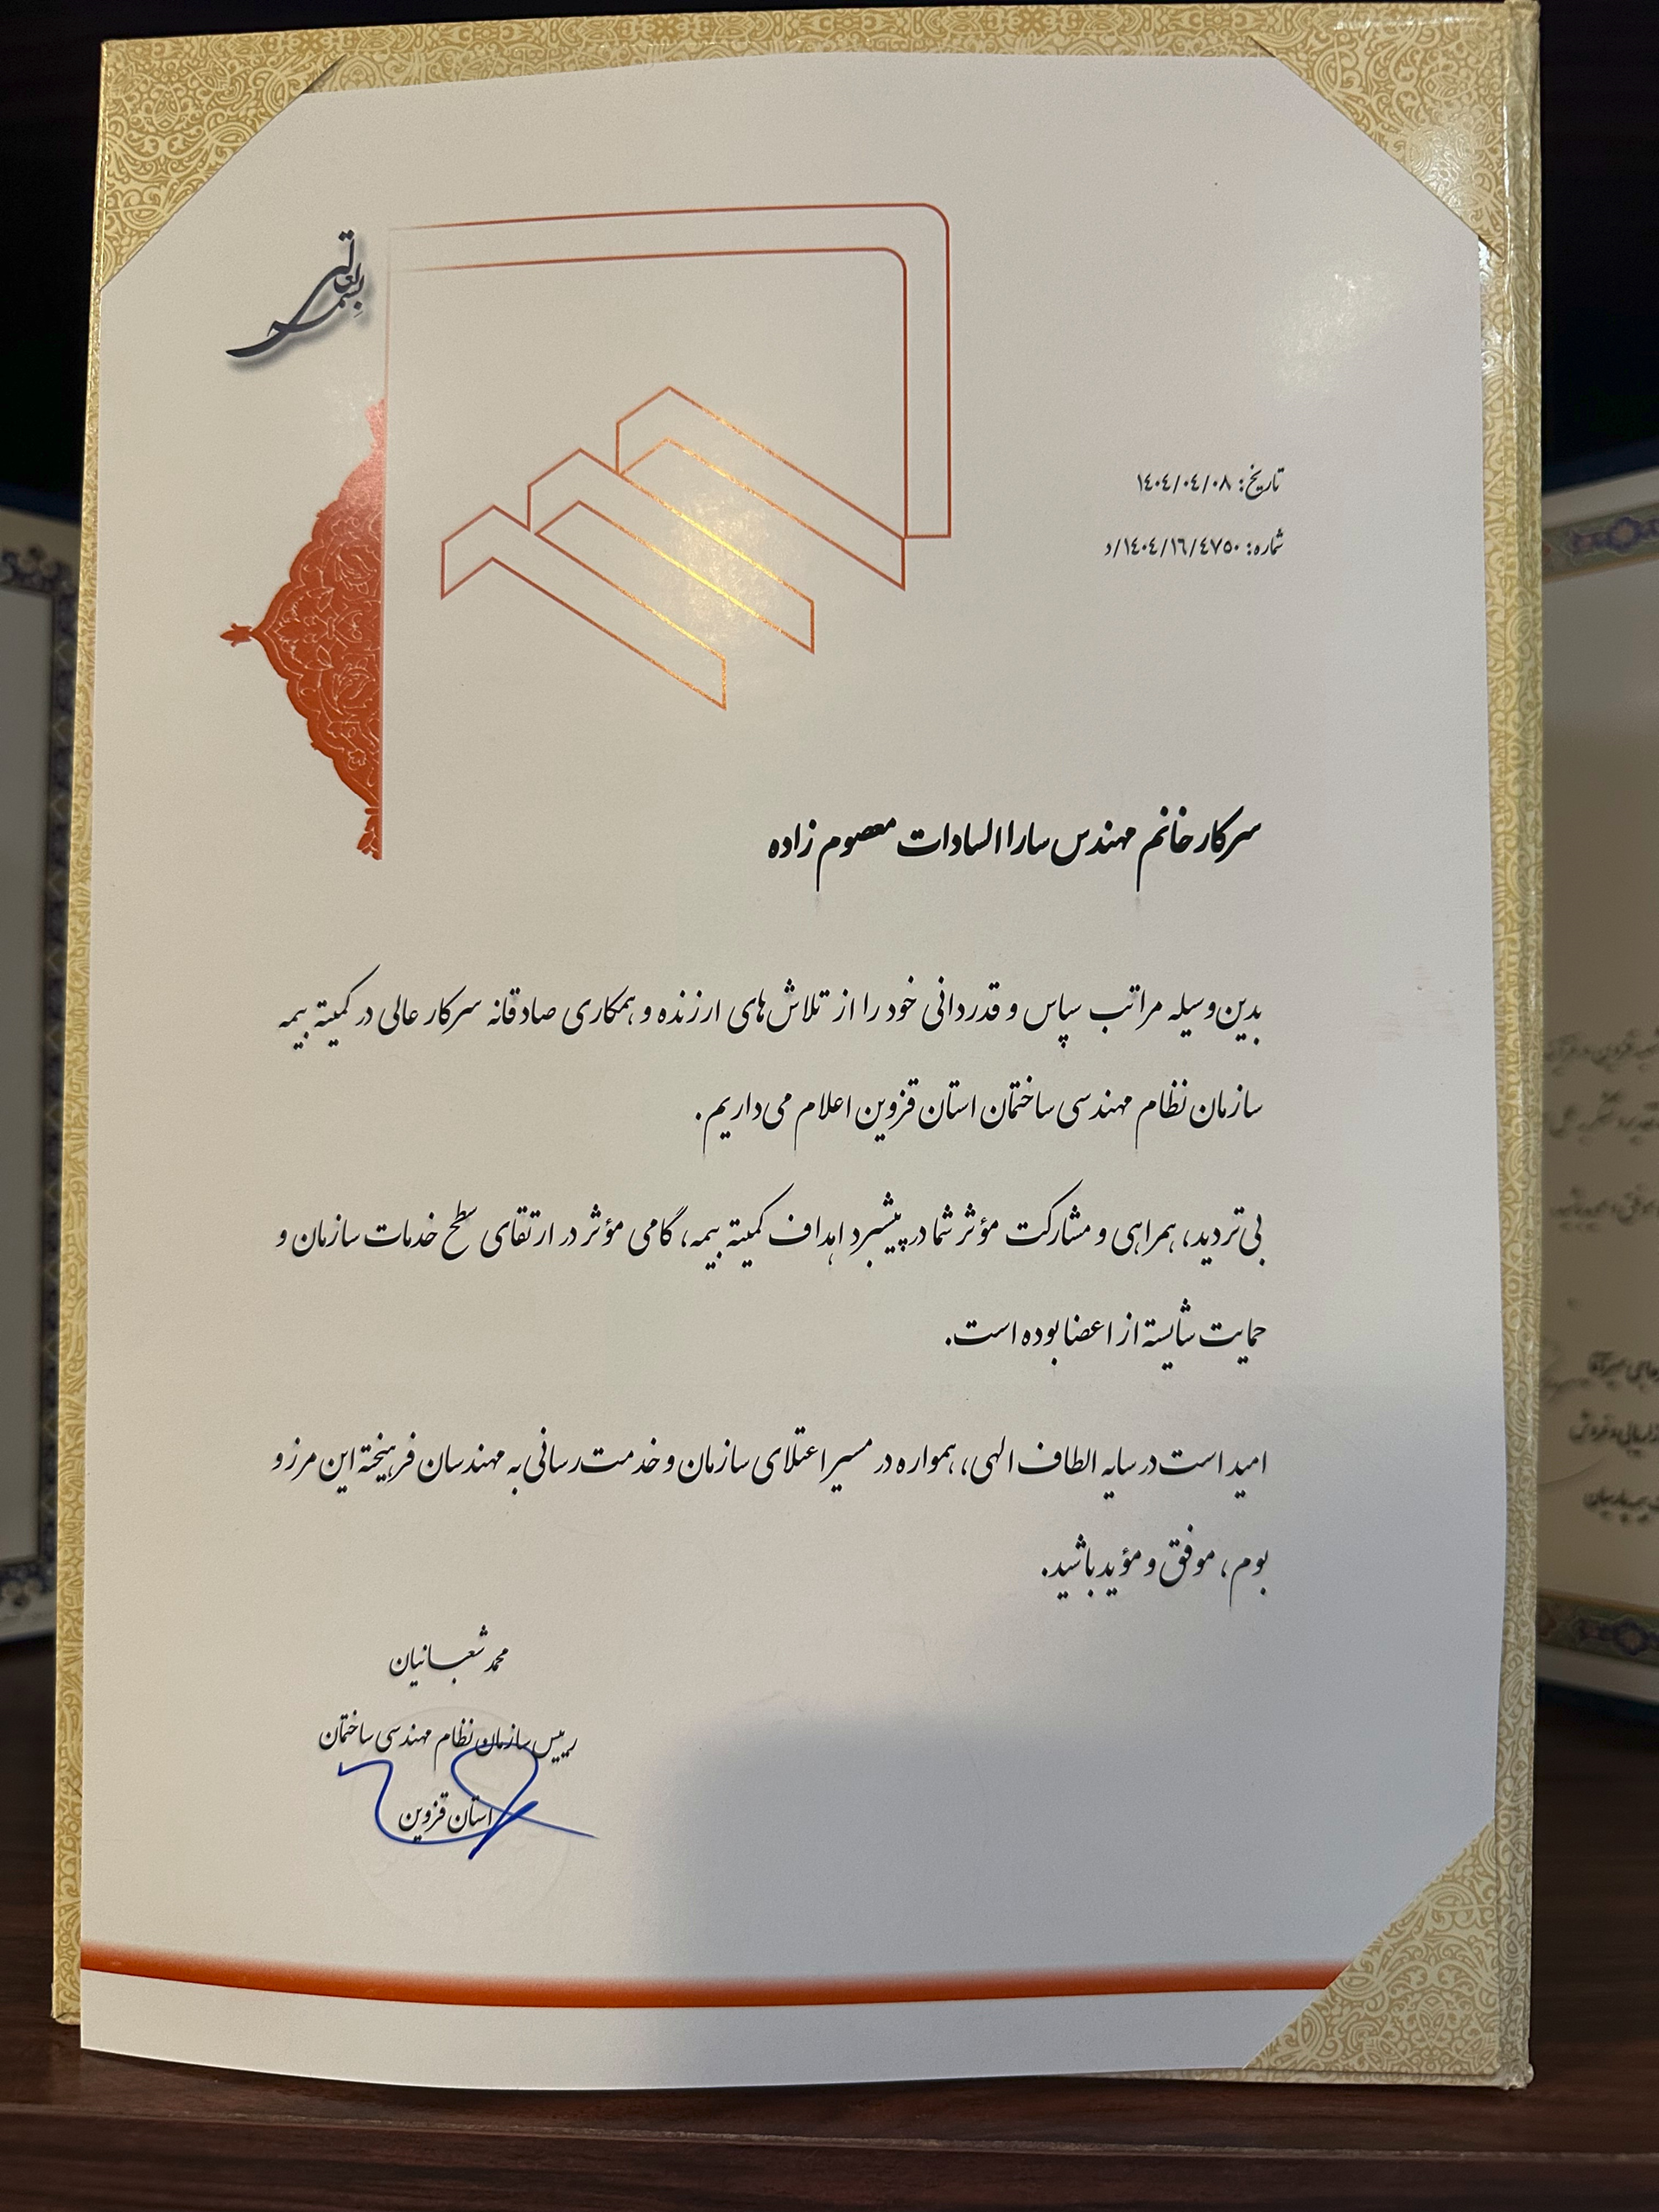 بسمه تعالی
تاریخ: ۱۴۰۴/۰۴/۰۸
شماره: ۱۴۰۴/۱۶/۴۷۵۰/د
سرکار خانم مهندس سارا السادات معصوم زاده
بدین‌وسیله مراتب سپاس و قدردانی خود را از تلاش‌های ارزنده و همکاری صادقانه سرکار عالی در کمیته بیمه
سازمان نظام مهندسی ساختمان استان قزوین اعلام می‌داریم.
بی‌تردید، همراهی و مشارکت مؤثر شما در پیشبرد اهداف کمیته بیمه، گامی مؤثر در ارتقای سطح خدمات سازمان و
حمایت شایسته از اعضا بوده است.
امید است در سایه الطاف الهی، همواره در مسیر اعتلای سازمان و خدمت‌رسانی به مهندسان فرهیخته این مرز و
بوم، موفق و مؤید باشید.
محمد شعبانیان
رییس سازمان نظام مهندسی ساختمان
استان قزوین